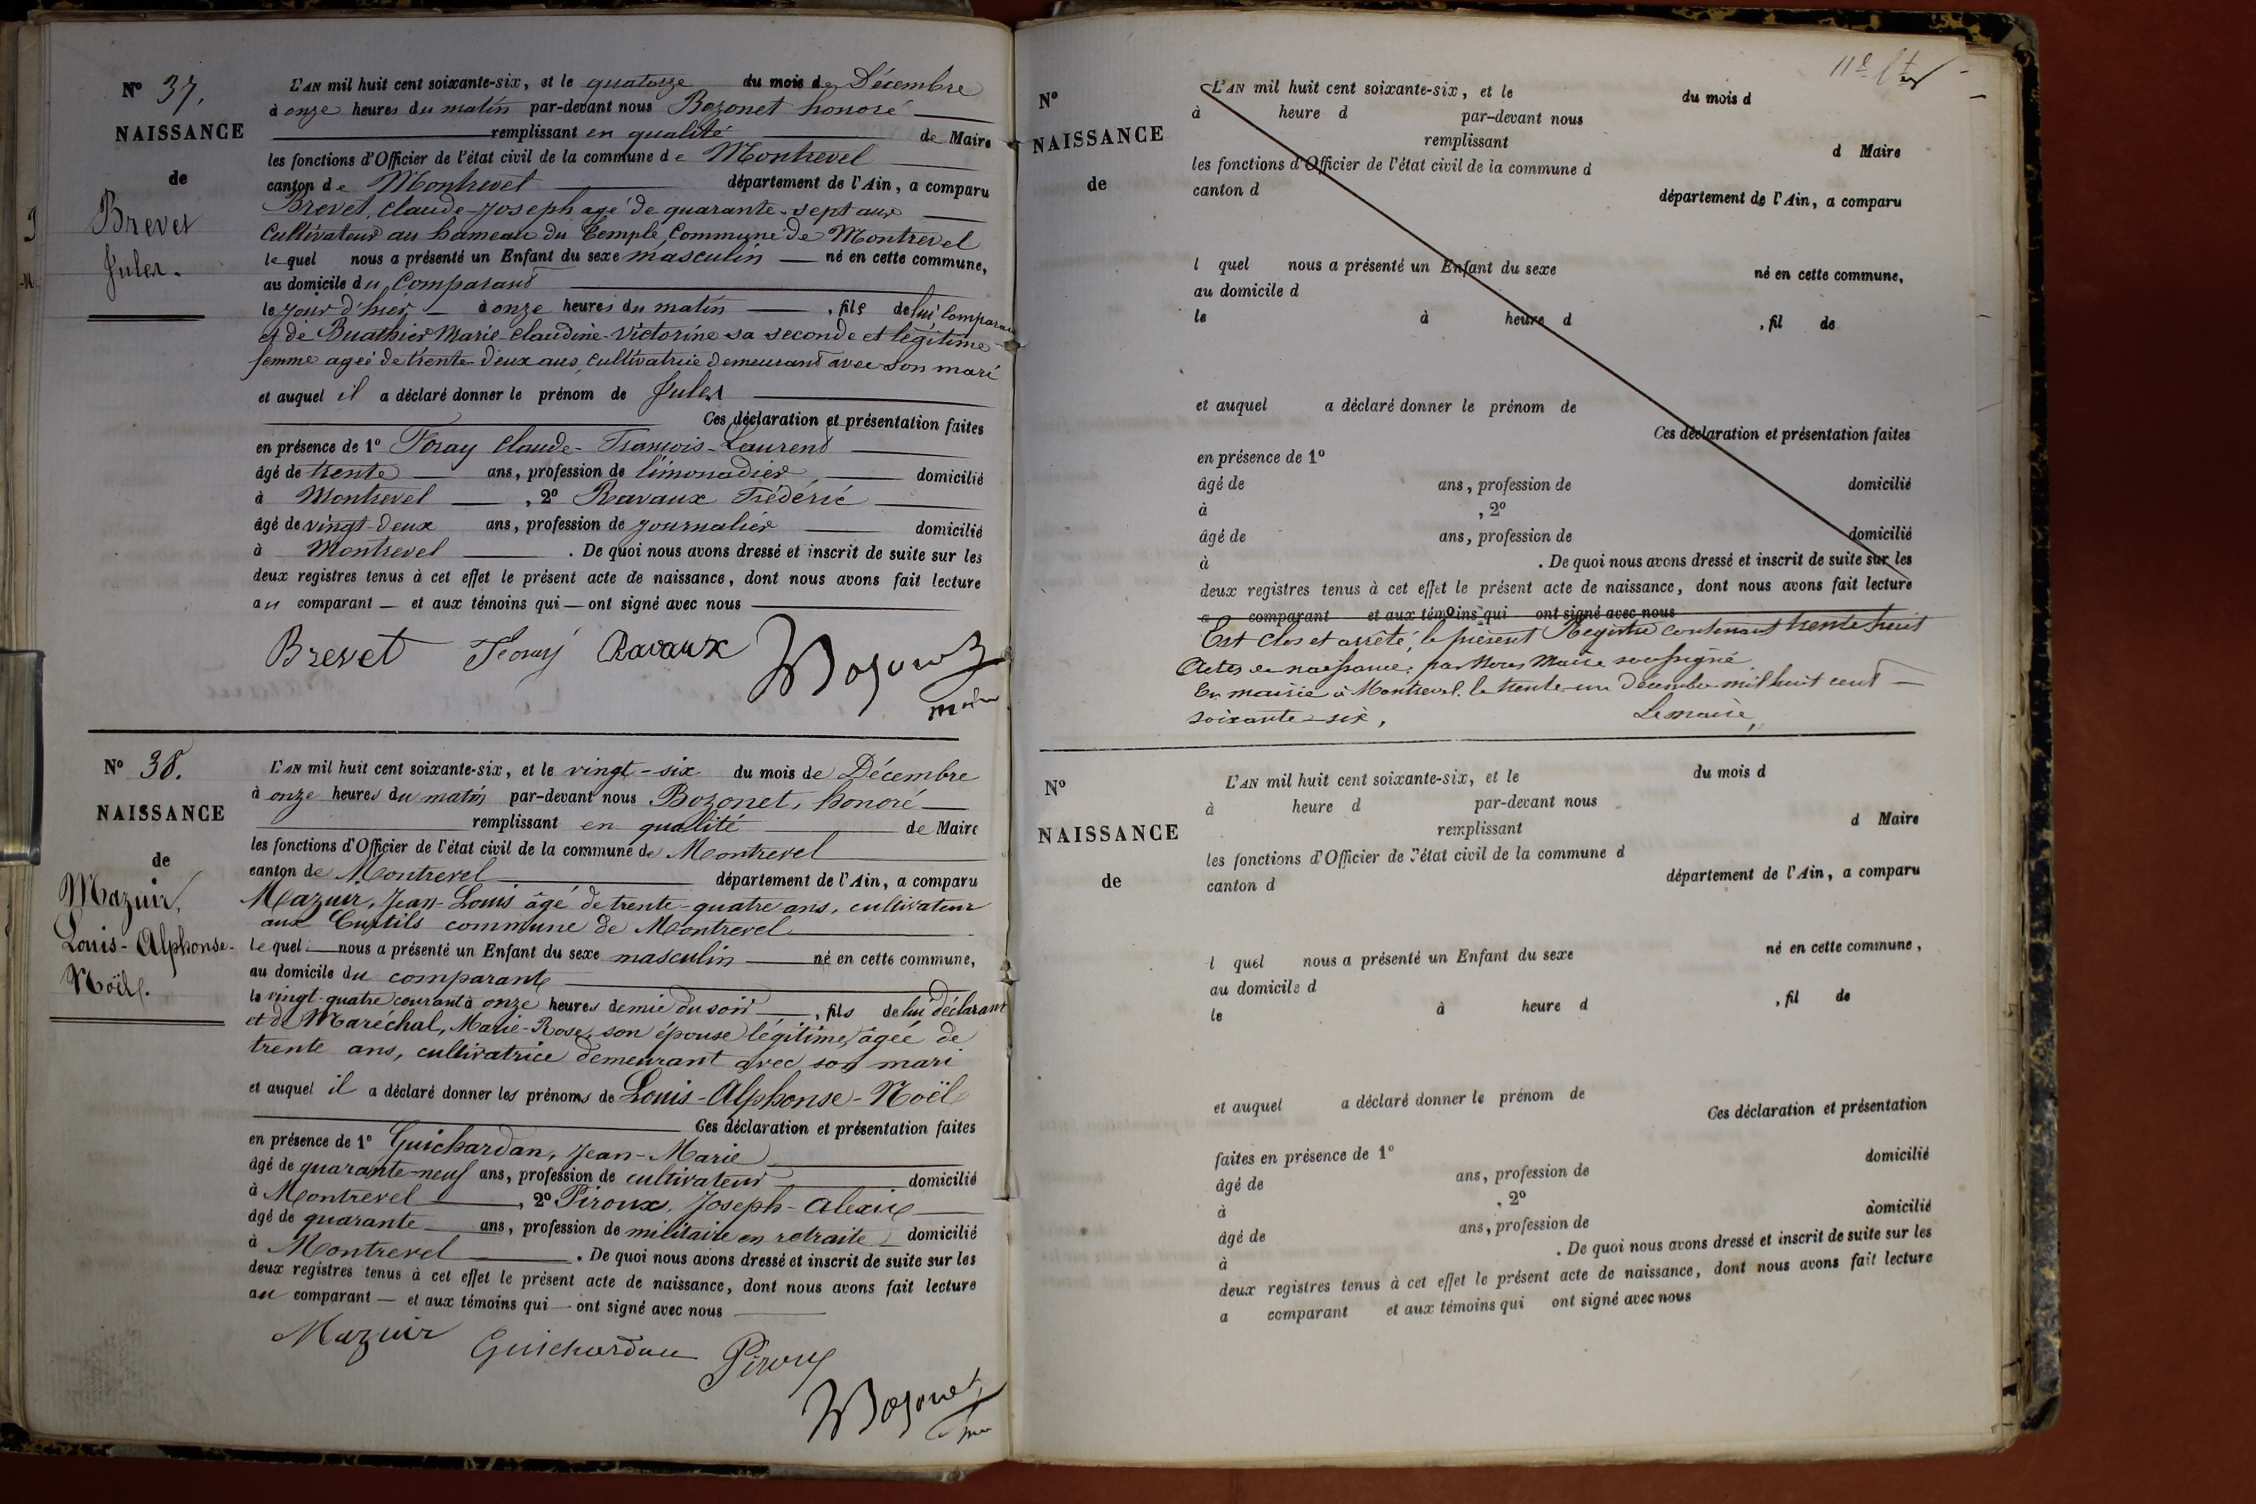 N° 37.
NAISSANCE
de
Brevet
Jules.
L'AN mil huit cent soixante-six, et le quatorze du mois de Décembre
à onze heures du matin par-devant nous Bozonet honoré
remplissant en qualité de Maire
les fonctions d'Officier de l'état civil de la commune de Montrevel
canton de Montrevel département de l'Ain, a comparu
Brevet, Claude-Joseph agé de quarante-sept ans
Cultivateur au hameau du Temple, Commune de Montrevel
lequel nous a présenté un Enfant du sexe masculin né en cette commune,
au domicile du Comparant
le jour d'hier à onze heures du matin, fils de lui comparant
et de Buathier Marie-Claudine-Victorine sa seconde et légitime
femme agée de trente-deux ans, cultivatrice demeurant avec son mari
et auquel il a déclaré donner le prénom de Jules
Ces déclaration et présentation faites
en présence de 1° Foray Claude-François-Laurend
âgé de trente ans, profession de limonadier domicilié
à Montrevel, 2° Ravaux Frédéric
âgé de vingt-deux ans, profession de journalier domicilié
à Montrevel. De quoi nous avons dressé et inscrit de suite sur les
deux registres tenus à cet effet le présent acte de naissance, dont nous avons fait lecture
au comparant — et aux témoins qui — ont signé avec nous
Brevet Foray Ravaux Bozonet
maire
N° 38.
NAISSANCE
de
Mazuir,
Louis-Alphonse-
Noël.
L'AN mil huit cent soixante-six, et le vingt-six du mois de Décembre
à onze heures du matin par-devant nous Bozonet, honoré
remplissant en qualité de Maire
les fonctions d'Officier de l'état civil de la commune de Montrevel
canton de Montrevel département de l'Ain, a comparu
Mazuir, Jean-Louis âgé de trente-quatre ans, cultivateur
aux Curtils commune de Montrevel
lequel nous a présenté un Enfant du sexe masculin né en cette commune,
au domicile du comparant
le vingt-quatre courant à onze heures demie du soir, fils de lui déclarant
et de Maréchal, Marie-Rose, son épouse légitime, âgée de
trente ans, cultivatrice demeurant avec son mari
et auquel il a déclaré donner les prénoms de Louis-Alphonse-Noël
Ces déclaration et présentation faites
en présence de 1° Guichardan, Jean-Marie
âgé de quarante-neuf ans, profession de cultivateur domicilié
à Montrevel, 2° Piroux, Joseph-Alexis
âgé de quarante ans, profession de militaire en retraite domicilié
à Montrevel. De quoi nous avons dressé et inscrit de suite sur les
deux registres tenus à cet effet le présent acte de naissance, dont nous avons fait lecture
au comparant — et aux témoins qui — ont signé avec nous
Mazuir Guichardan Piroux
Bozonet
11e
N°
NAISSANCE
de
L'AN mil huit cent soixante-six, et le du mois d
à heure d par-devant nous
remplissant d Maire
les fonctions d'Officier de l'état civil de la commune d
canton d département de l'Ain, a comparu
l quel nous a présenté un Enfant du sexe né en cette commune,
au domicile d
le à heure d , fil de
et auquel a déclaré donner le prénom de
Ces déclaration et présentation faites
en présence de 1°
âgé de ans, profession de domicilié
à , 2°
âgé de ans, profession de domicilié
à . De quoi nous avons dressé et inscrit de suite sur les
deux registres tenus à cet effet le présent acte de naissance, dont nous avons fait lecture
a comparant et aux témoins qui ont signé avec nous
Est clos et arrêté, le présent Registre contenant trente huit
Actes de naissance, par Nous Maire soussigné.
En mairie à Montrevel, le trente-un décembre mil huit cent
soixante-six, Le maire,
N°
NAISSANCE
de
L'AN mil huit cent soixante-six, et le du mois d
à heure d par-devant nous
remplissant d Maire
les fonctions d'Officier de l'état civil de la commune d
canton d département de l'Ain, a comparu
l quel nous a présenté un Enfant du sexe né en cette commune,
au domicile d
le à heure d , fil de
et auquel a déclaré donner le prénom de
Ces déclaration et présentation
faites en présence de 1°
âgé de ans, profession de domicilié
à , 2°
âgé de ans, profession de domicilié
à . De quoi nous avons dressé et inscrit de suite sur les
deux registres tenus à cet effet le présent acte de naissance, dont nous avons fait lecture
a comparant et aux témoins qui ont signé avec nous